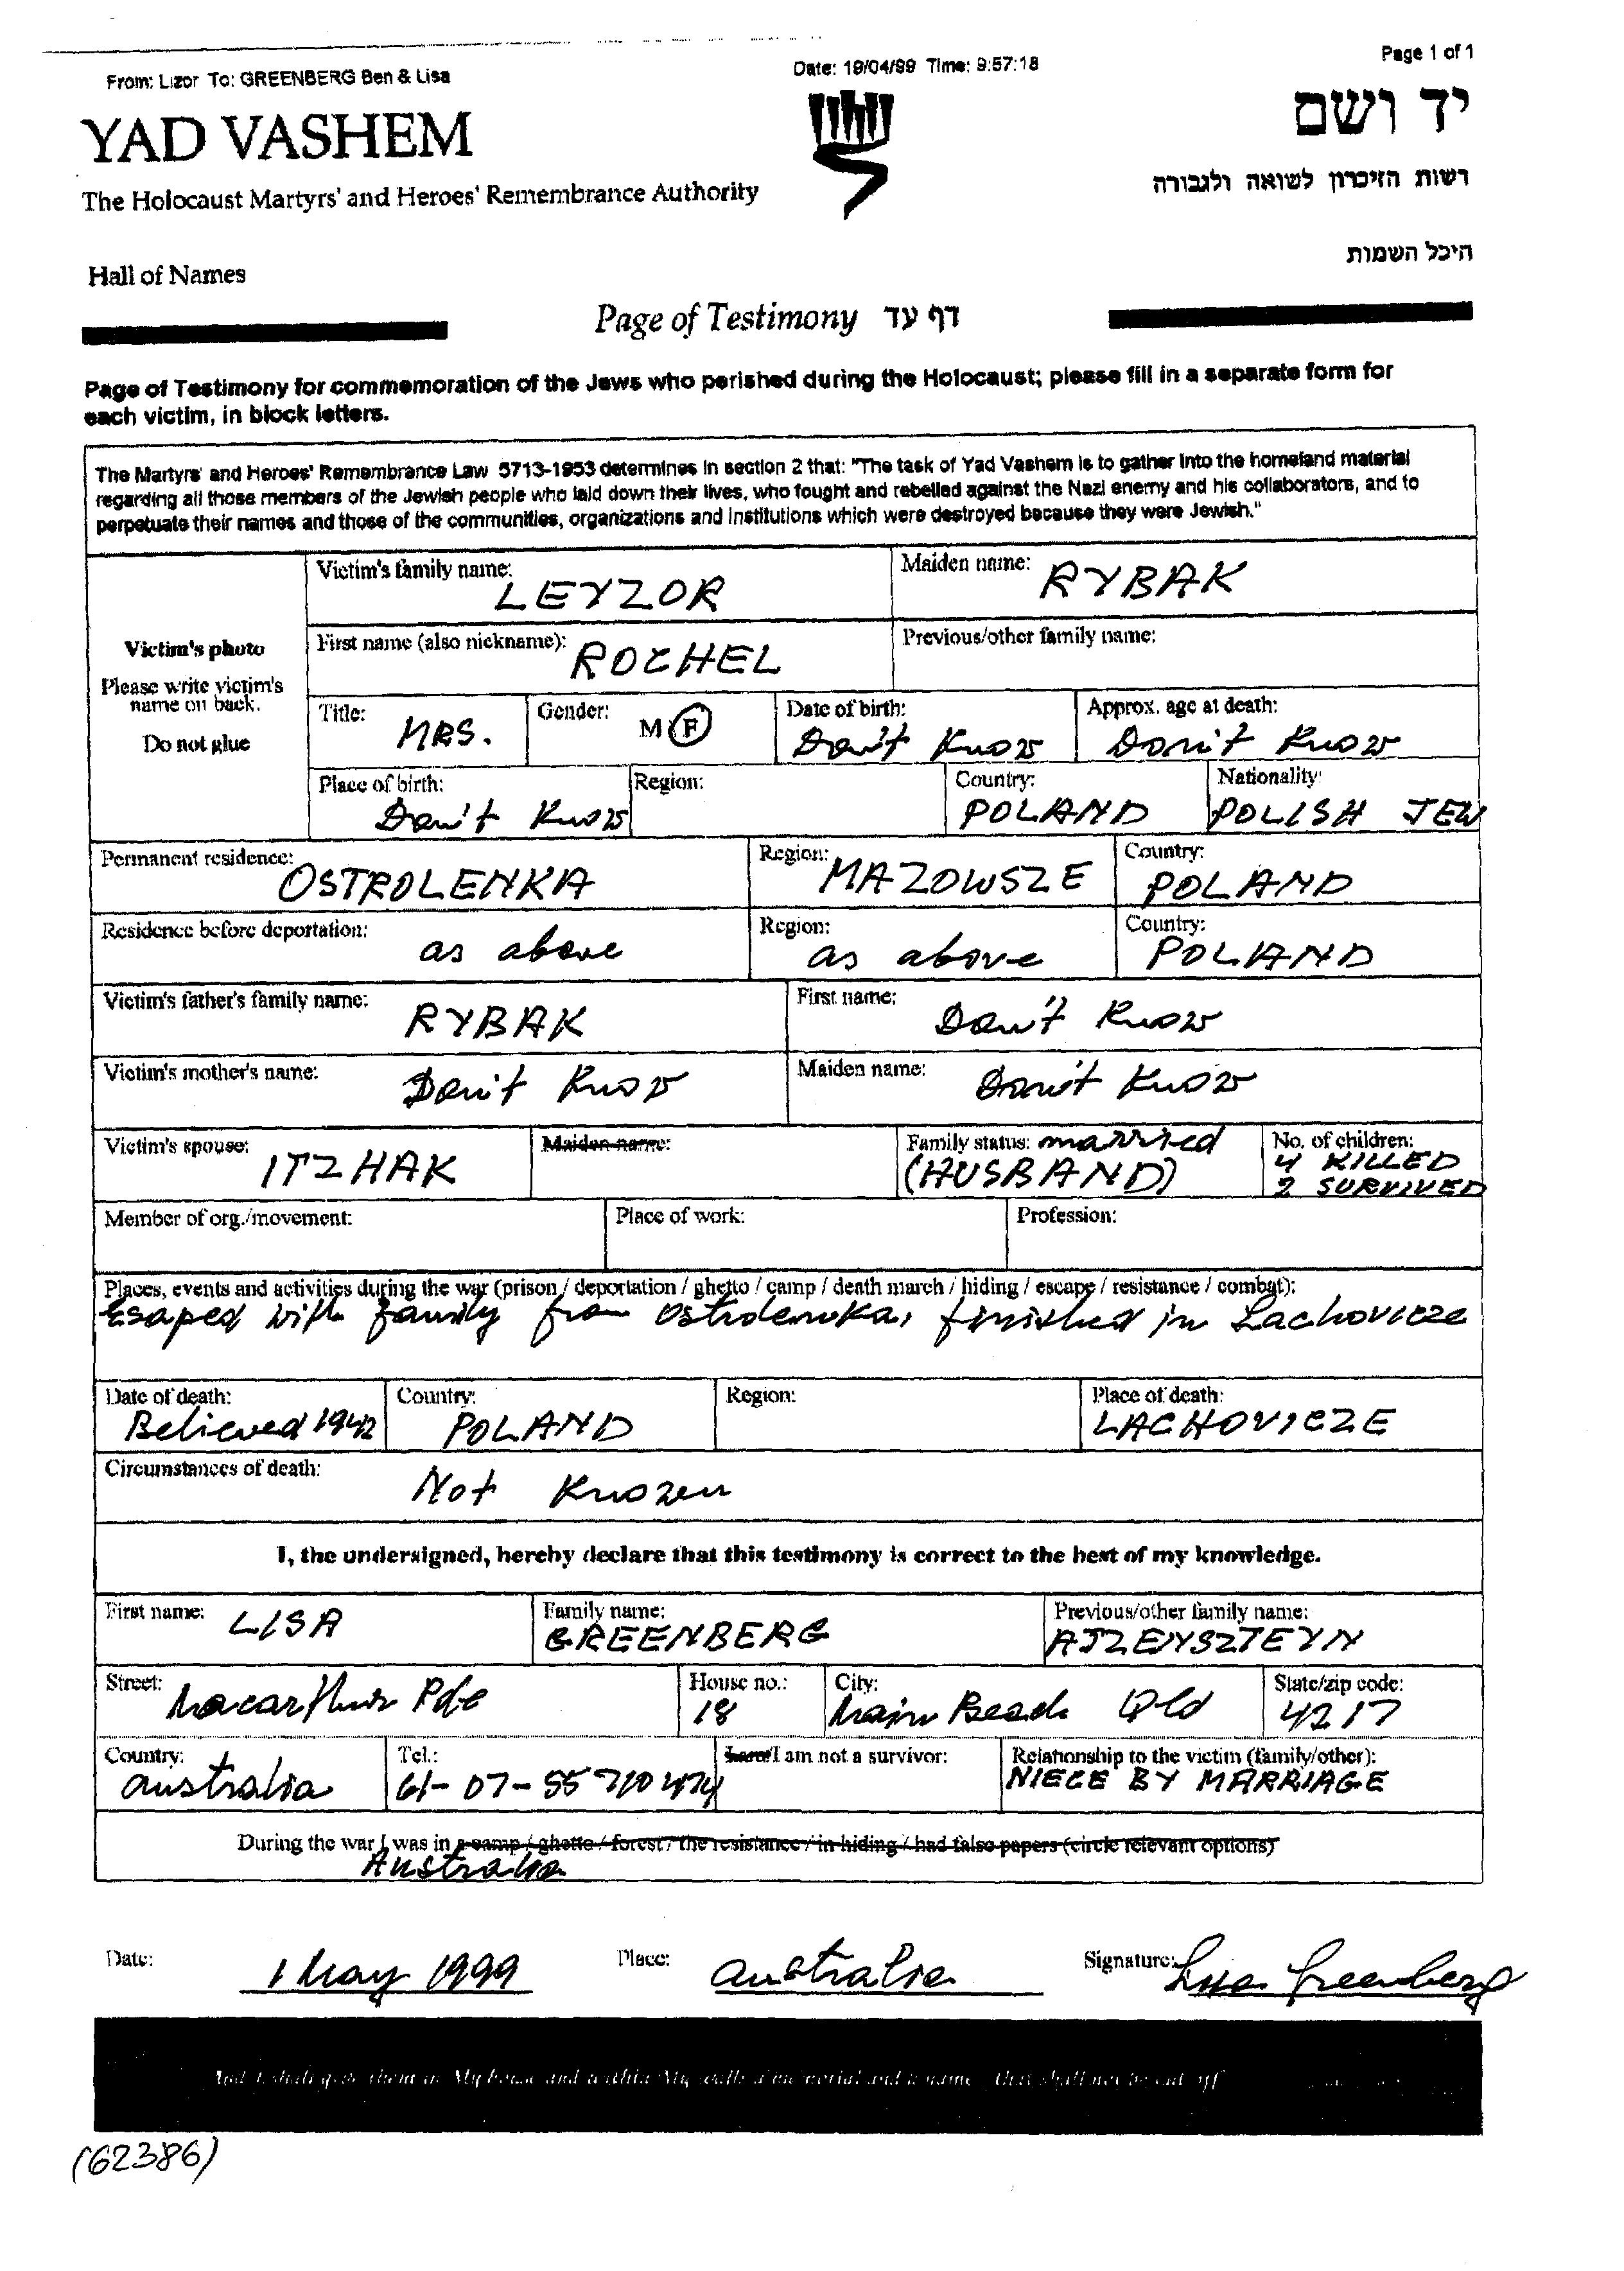 From: Lizor To: GREENBERG Ben & Lisa Date: 19/04/99 Time: 9:57:18 Page 1 of 1
YAD VASHEM יד ושם
The Holocaust Martyrs' and Heroes' Remembrance Authority רשות הזיכרון לשואה ולגבורה
Hall of Names היכל השמות
Page of Testimony דף עד
Page of Testimony for commemoration of the Jews who perished during the Holocaust; please fill in a separate form for
each victim, in block letters.
The Martyrs' and Heroes' Remembrance Law 5713-1953 determines in section 2 that: "The task of Yad Vashem is to gather into the homeland material
regarding all those members of the Jewish people who laid down their lives, who fought and rebelled against the Nazi enemy and his collaborators, and to
perpetuate their names and those of the communities, organizations and institutions which were destroyed because they were Jewish."
Victim's photo
Please write victim's
name on back.
Do not glue
Victim's family name: LEYZOR Maiden name: RYBAK
First name (also nickname): ROCHEL Previous/other family name:
Title: MRS. Gender: M F Date of birth: Don't Know Approx. age at death: Don't Know
Place of birth: Don't Know Region: Country: POLAND Nationality: POLISH JEW
Permanent residence: OSTROLENKA Region: MAZOWSZE Country: POLAND
Residence before deportation: as above Region: as above Country: POLAND
Victim's father's family name: RYBAK First name: Don't Know
Victim's mother's name: Don't Know Maiden name: Don't Know
Victim's spouse: ITZHAK Maiden name: Family status: married (HUSBAND) No. of children: 4 KILLED 2 SURVIVED
Member of org./movement: Place of work: Profession:
Places, events and activities during the war (prison / deportation / ghetto / camp / death march / hiding / escape / resistance / combat):
Escaped with family from Ostrolenka, finished in Lachovicze
Date of death: Believed 1942 Country: POLAND Region: Place of death: LACHOVICZE
Circumstances of death: Not Known
I, the undersigned, hereby declare that this testimony is correct to the best of my knowledge.
First name: LISA Family name: GREENBERG Previous/other family name: AJZENSZTEYN
Street: Macarthur Pde House no.: 18 City: Main Beach Qld State/zip code: 4217
Country: Australia Tel.: 61-07-55710474 I am/I am not a survivor: Relationship to the victim (family/other): NIECE BY MARRIAGE
During the war I was in a camp / ghetto / forest / the resistance / in hiding / had false papers (circle relevant options)
Australia
Date: 1 May 1999 Place: Australia Signature: Lisa Greenberg
And I shall give them in My house and within My walls a memorial and a name that shall not be cut off
(62386)